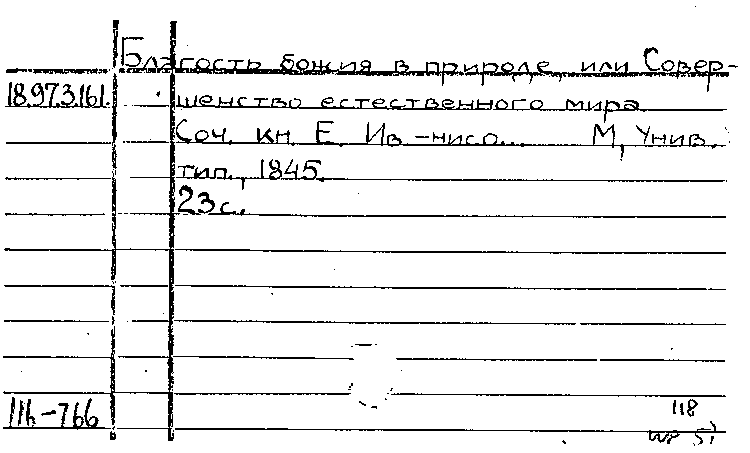 Благость божия в природе, или Совер-
18.97.3.161. шенство естественного мира
Соч. кн. Е. Ив.-нисо... М, Унив.
тип., 1845.
23 с.
116-766 118